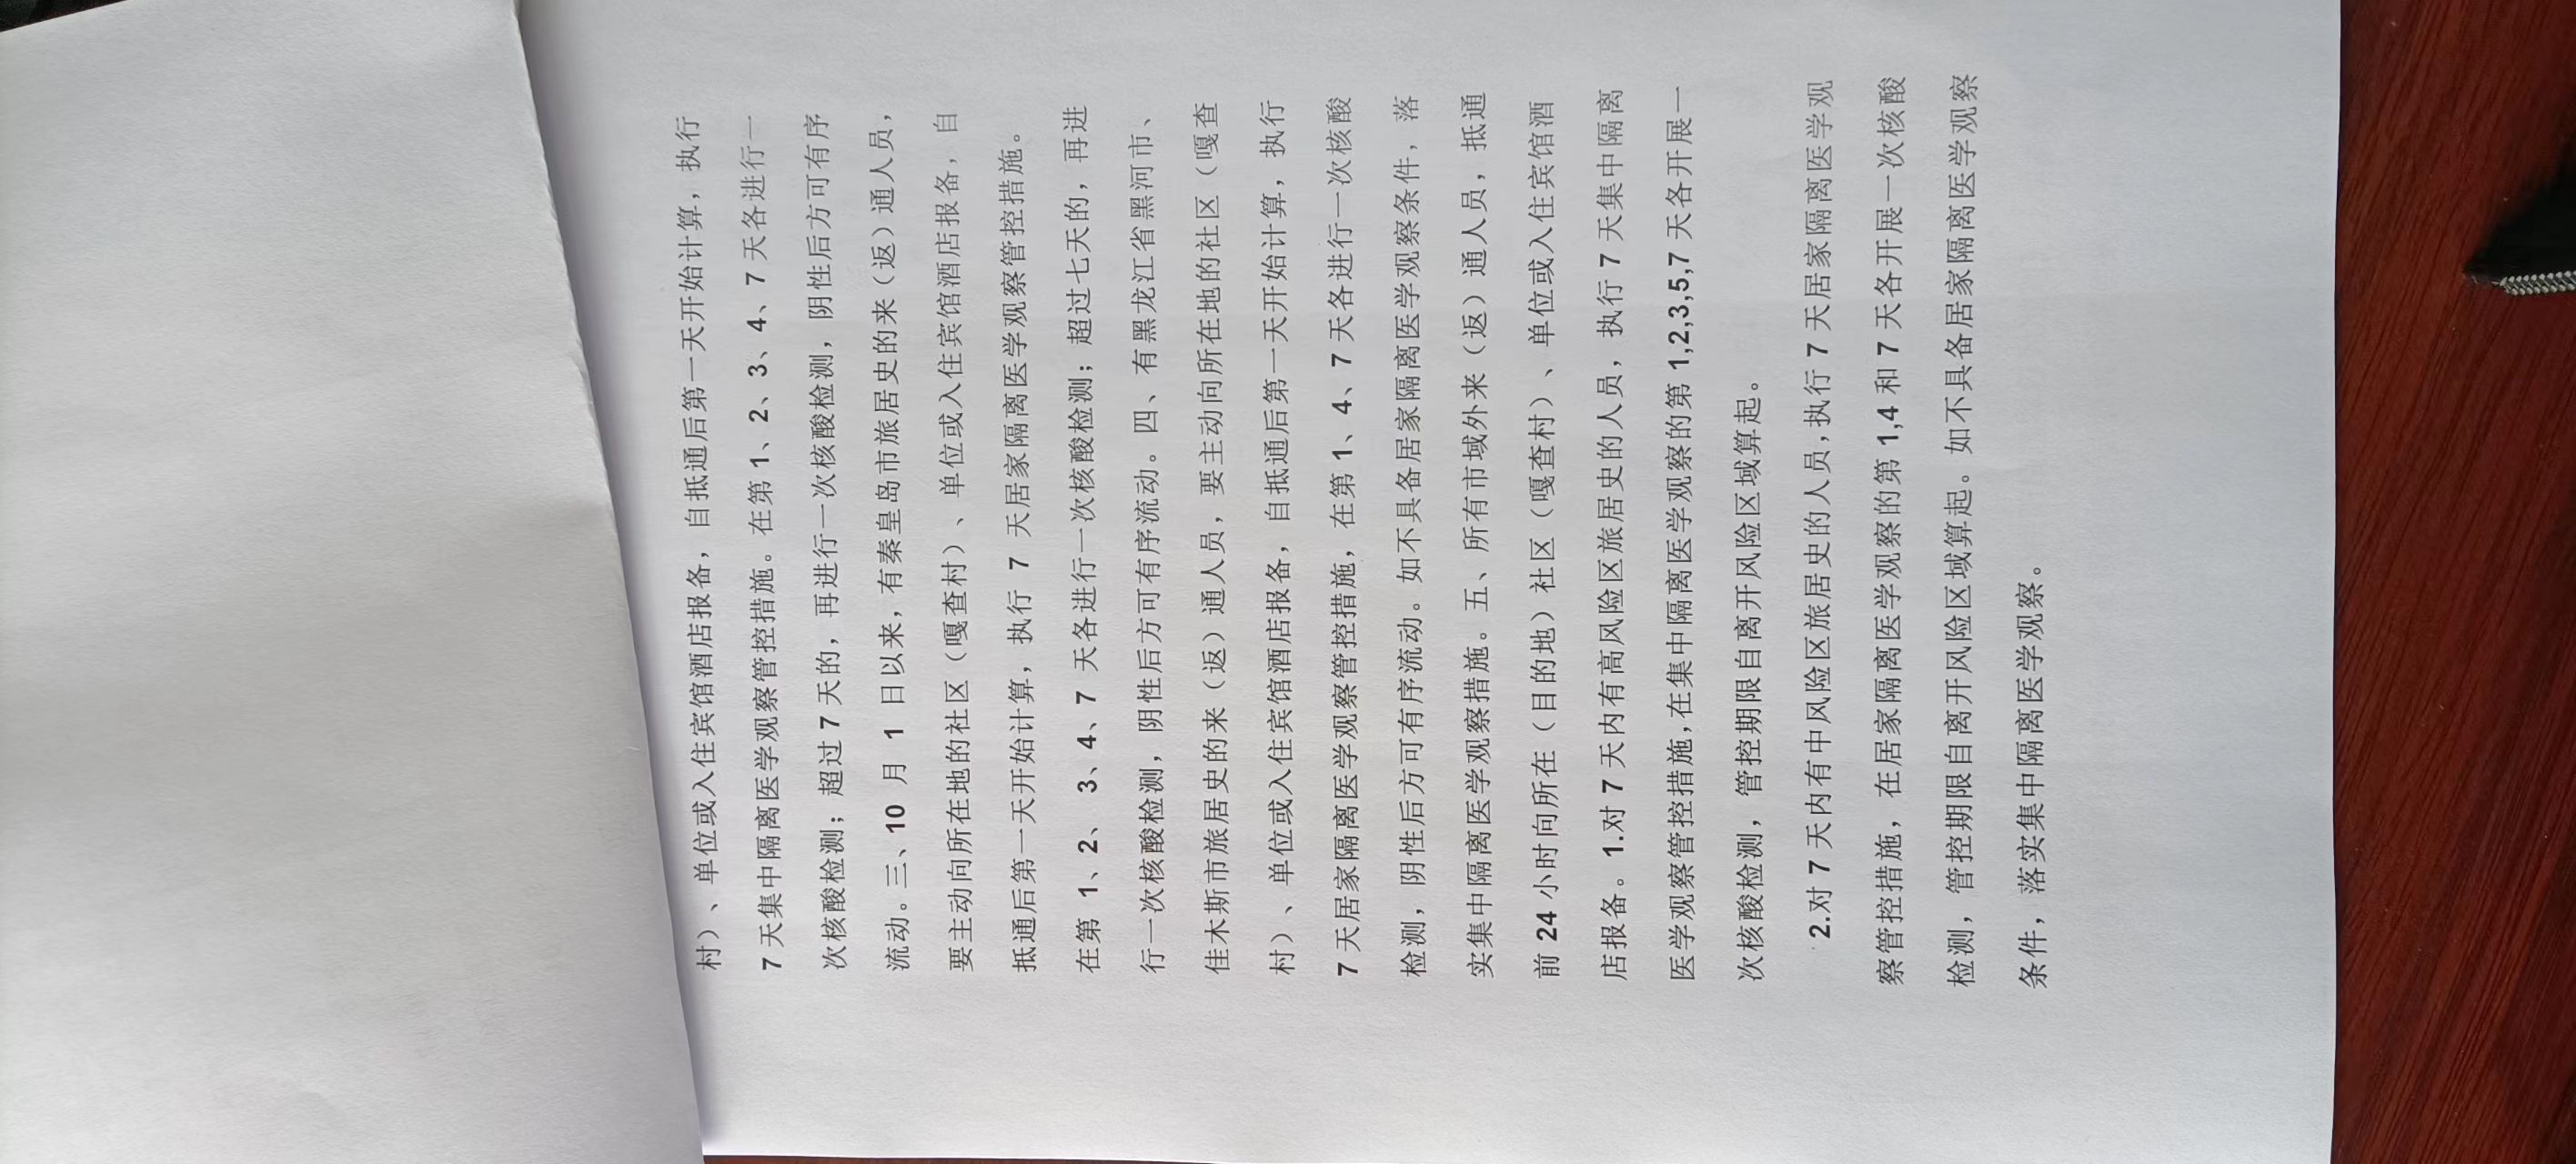 村）、单位或入住宾馆酒店报备，自抵通后第一天开始计算，执行
7 天集中隔离医学观察管控措施。在第 1、2、3、4、7 天各进行一
次核酸检测；超过 7 天的，再进行一次核酸检测，阴性后方可有序
流动。三、10 月 1 日以来，有秦皇岛市旅居史的来（返）通人员，
要主动向所在地的社区（嘎查村）、单位或入住宾馆酒店报备，自
抵通后第一天开始计算，执行 7 天居家隔离医学观察管控措施。
在第 1、2、3、4、7 天各进行一次核酸检测；超过七天的，再进
行一次核酸检测，阴性后方可有序流动。四、有黑龙江省黑河市、
佳木斯市旅居史的来（返）通人员，要主动向所在地的社区（嘎查
村）、单位或入住宾馆酒店报备，自抵通后第一天开始计算，执行
7 天居家隔离医学观察管控措施，在第 1、4、7 天各进行一次核酸
检测，阴性后方可有序流动。如不具备居家隔离医学观察条件，落
实集中隔离医学观察措施。五、所有市域外来（返）通人员，抵通
前 24 小时向所在（目的地）社区（嘎查村）、单位或入住宾馆酒
店报备。1.对 7 天内有高风险区旅居史的人员，执行 7 天集中隔离
医学观察管控措施,在集中隔离医学观察的第 1,2,3,5,7 天各开展一
次核酸检测，管控期限自离开风险区域算起。
2.对 7 天内有中风险区旅居史的人员,执行 7 天居家隔离医学观
察管控措施，在居家隔离医学观察的第 1,4 和 7 天各开展一次核酸
检测，管控期限自离开风险区域算起。如不具备居家隔离医学观察
条件，落实集中隔离医学观察。